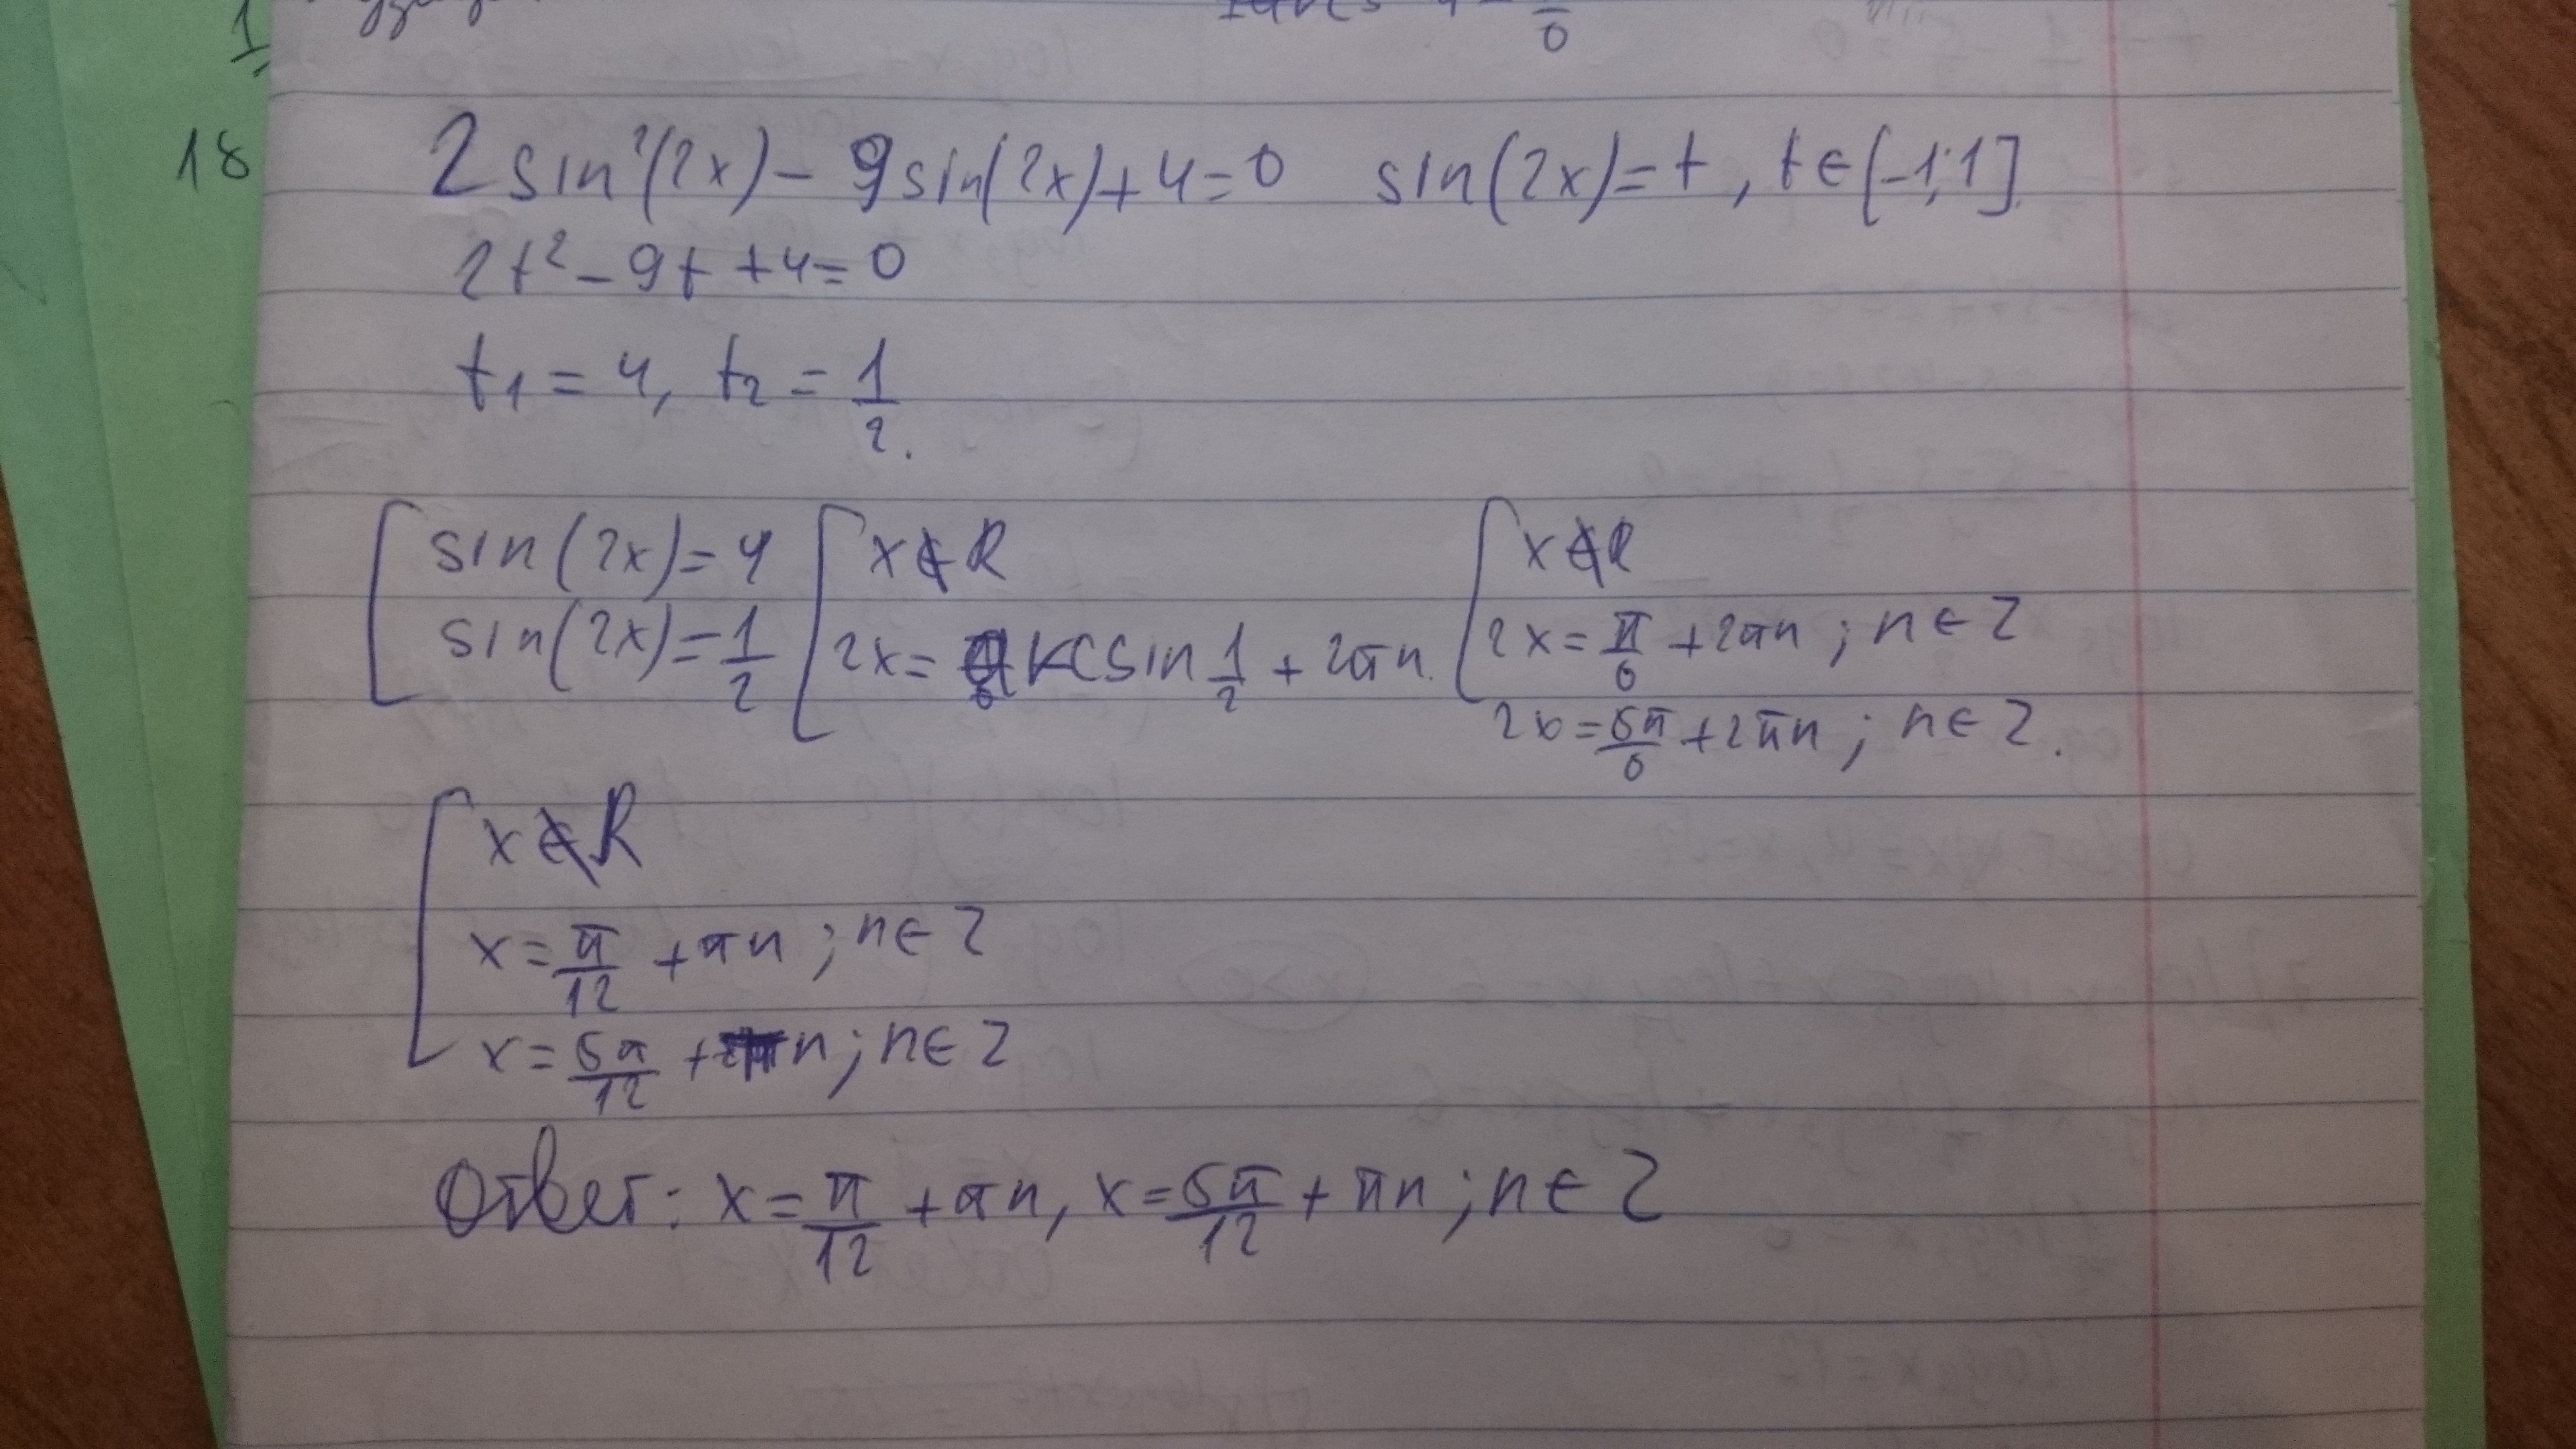 1
0
18 2sin²(2x) - 9sin(2x)+4=0 sin(2x)=t, t∈[-1;1]
2t²-9t+4=0
t₁=4, t₂=1/2.
[sin(2x)=4 [x∉R [x∉R
sin(2x)=1/2 2x= arcsin 1/2 + 2πn. 2x=π/6+2πn; n∈Z
2x=5π/6+2πn; n∈Z.
[x∉R
x=π/12+πn; n∈Z
x=5π/12+πn; n∈Z
Ответ: x=π/12+πn, x=5π/12+πn; n∈Z